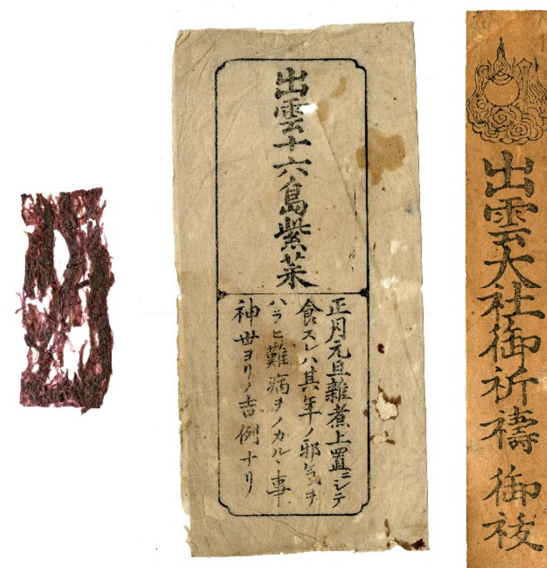 出雲十六島紫菜
正月元旦雑煮上置ニシテ
食スレハ其年ノ邪気ヲ
ハラヒ難病ヲノカルヽ事
神世ヨリノ吉例ナリ
出雲大社御祈禱 御祓